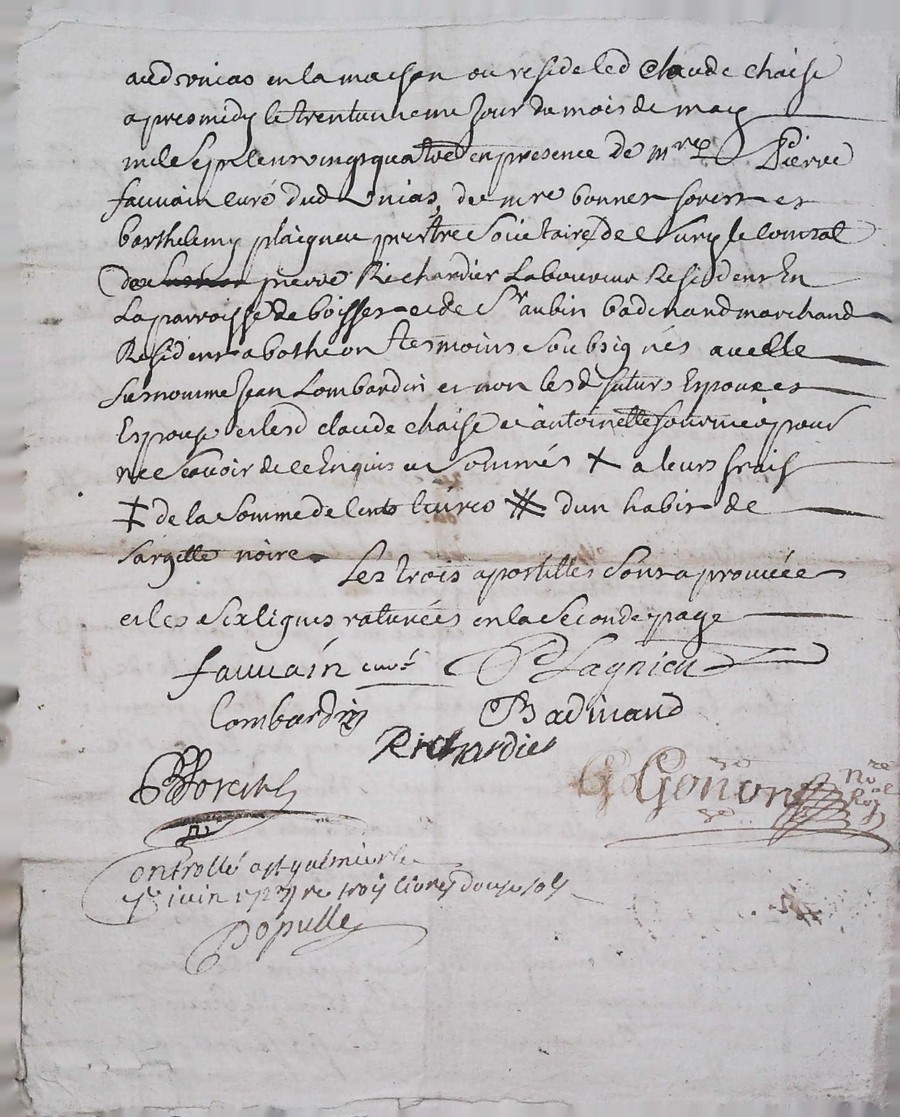 aud unias en la maison ou reside led claude chaise
apres midy le trentunieme jour du mois de may
mile sept cent vingt quatre en presence de mre Pierre
fauvain curé dud unias, de mre bonnet forest et
barthelemy plaigneu prestre societaire de Sury le comtal
pierre Richardier Laboureur Resident En
La parroisse de boisset et de St aubin badinand marchand
Resident a botheon tesmoins soubsignés avec le
susnommé Jean Lombardin et non lesd futurs Epoux et
Espouse et lesd claude chaise et antoinette pour
ne scavoir de ce Enquis et sommés + a leurs frais
‡ de la somme de cents livres # dun habit de
sargette noire
Les trois apostilles sont aprouvée
et les six lignes raturées en la seconde page
fauvain curé Plagnieu
Lombardin Badinand
Richardier
Forest
Gonon Nore Roial
Controllé a st galmier le
juin re troy livres douze sols
Populle